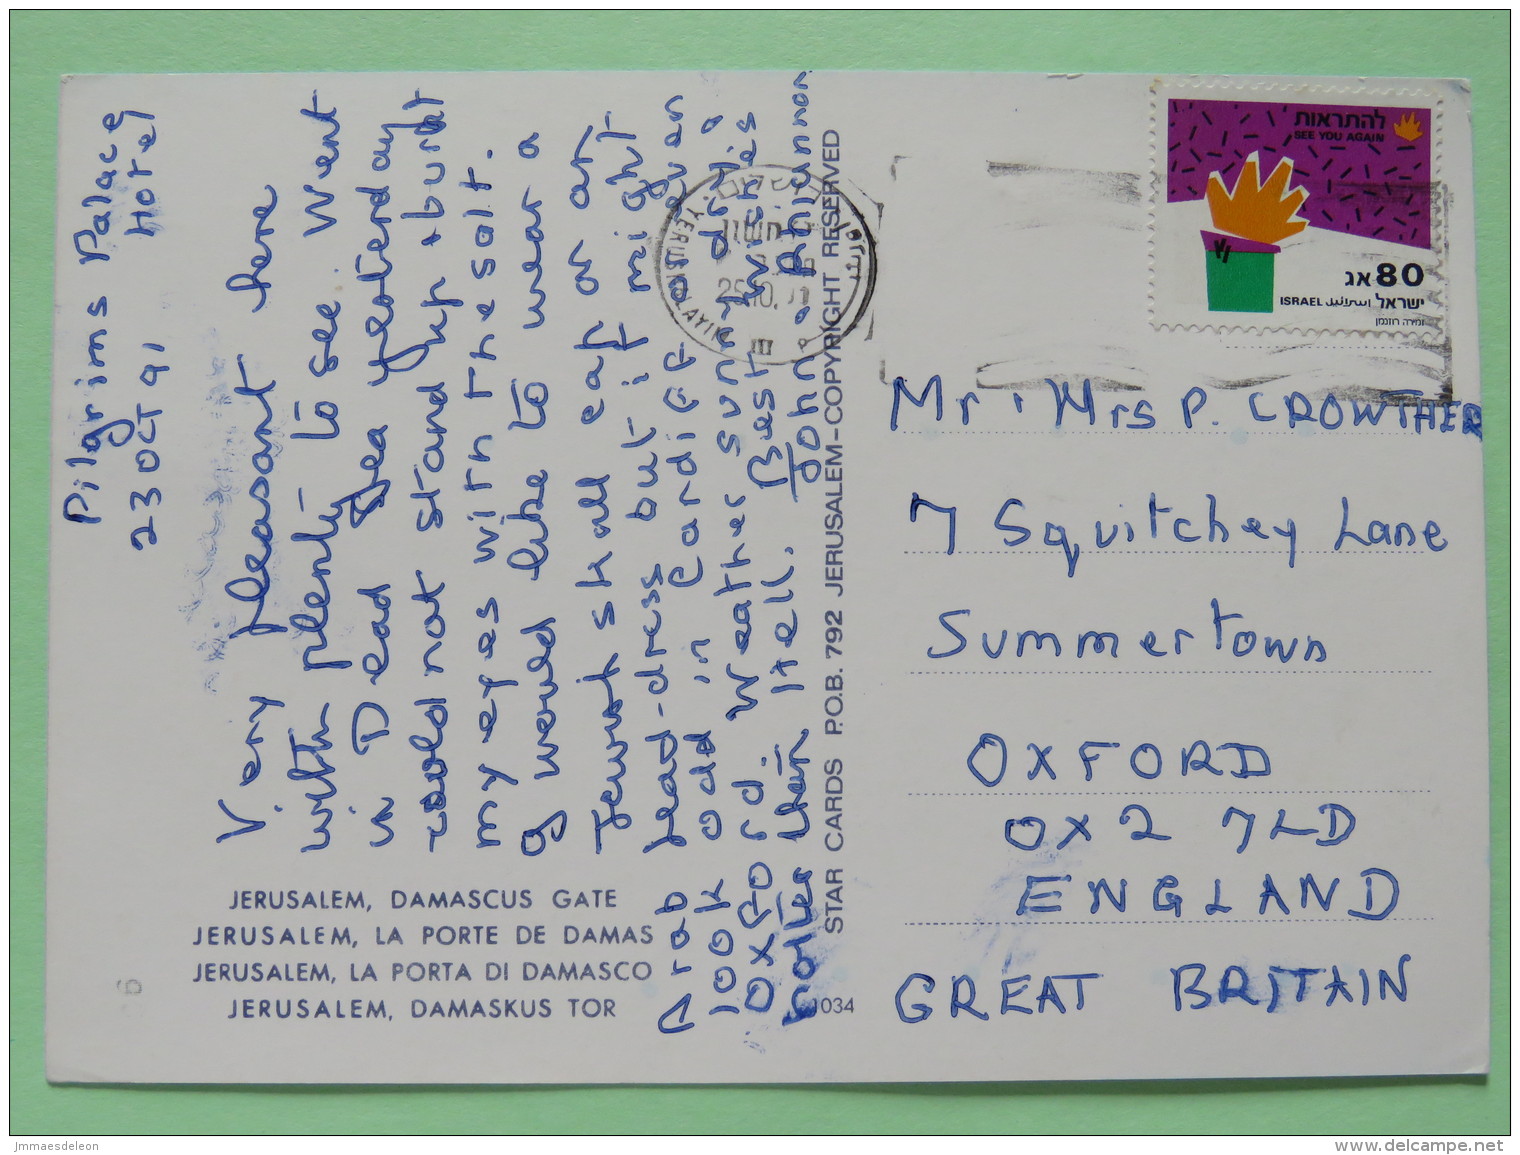 Pilgrims Palace
Hotel
23 OCT 91
Very pleasant here
with plenty to see. Went
in Dead Sea yesterday
could not stand up & burnt
my eyes with the salt.
I would like to wear a
Jewish skull cap or an
Arab head-dress but it might
look odd in Cardiff or even
Oxford. Weather sunny, dry &
hotter than Hell. Best wishes
John & Rhiannon
JERUSALEM, DAMASCUS GATE
JERUSALEM, LA PORTE DE DAMAS
JERUSALEM, LA PORTA DI DAMASCO
JERUSALEM, DAMASKUS TOR
6
1034
STAR CARDS P.O.B. 792 JERUSALEM–COPYRIGHT RESERVED
ירושלים
YERUSHALAYIM
להתראות
SEE YOU AGAIN
80 אג
ישראל اسرائيل ISRAEL
זמירה רוזנמן
Mr & Mrs P. CROWTHER
7 Squitchey Lane
Summertown
OXFORD
OX2 7LD
ENGLAND
GREAT BRITAIN
jmmaesdeleon
www.delcampe.net